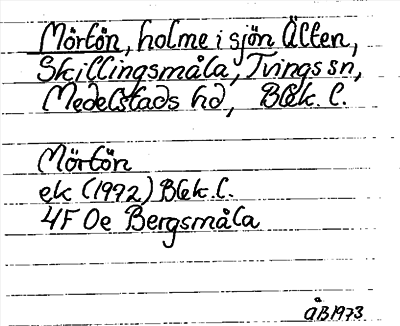 Mörtön, holme i sjön Älten,
Skillingsmåla, Tvings sn,
Medelstads hd, Blek. l.
Mörtön
ek (1992) Blek. l.
4F 0e Bergsmåla
ÅB 1973